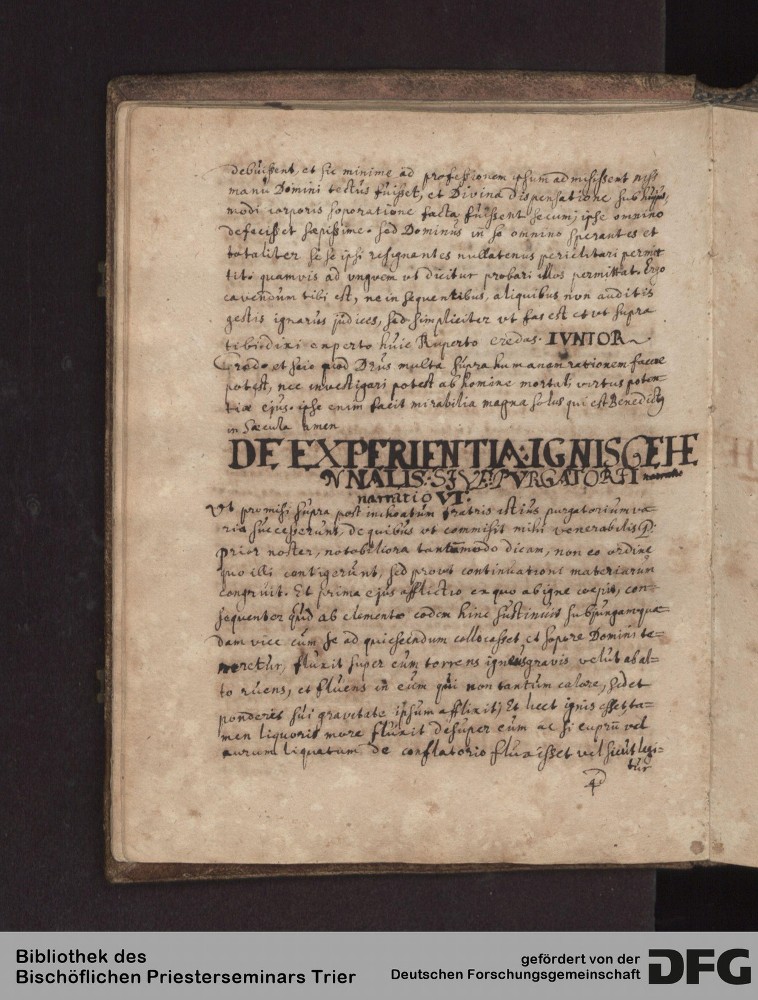 debuissent, et sic minime ad professionem ipsum admisissent nisi
manu Domini tectus fuisset, et Divina dispensatione sub hujus
modi corporis soporatione facta fuissent secum, ipse omnino
defecisset sæpissime. sed Dominus in se omnino sperantes et
totaliter se se ipsi resignantes nullatenus periclitari permit
tit, quamvis ad unguem ut dicitur probari illos permittat. Ergo
cavendum tibi est, ne in sequentibus, aliquibus non auditis
gestis ignarus judices, sed simpliciter ut fas est et ut supra
tibi dixi experto huic Ruperto credas. IVNIOR
Credo et scio quod Deus multa supra humanam rationem facere
potest, nec investigari potest ab homine mortali virtus poten
tiæ ejus. ipse enim facit mirabilia magna solus qui est Benedictus
in Sæcula amen
DE EXPERIENTIA IGNIS GEHE
NNALIS. SIVE PVRGATORII
narratio VI.
Ut promisi supra post inchoatum fratris istius purgatorium va
ria successerunt, de quibus ut commisit mihi venerabilis P.
prior noster, notabiliora tantummodo dicam, non eo ordine
quo illi contigerunt, sed prout continuationi materiarum
congruit. Et prima ejus afflictio ex quo ab igne coepit, con-
sequenter quid ab elemento eodem hinc sustinuit subjungam quæ=
dam vice cum se ad quiescendum collocasset et sopore Domini te=
neretur, fluxit super eum torrens igneus gravis velut ab al=
to ruens, et fluens in eum qui non tantum calore, sed et
ponderis sui gravitate ipsum afflixit; Et licet ignis esset ta=
men liquoris more fluxit desuper eum ac si cuprum vel
aurum liquatum de conflatorio fluxisset vel sicut legi=
tur
Bibliothek des
Bischöflichen Priesterseminars Trier
gefördert von der
Deutschen Forschungsgemeinschaft
DFG